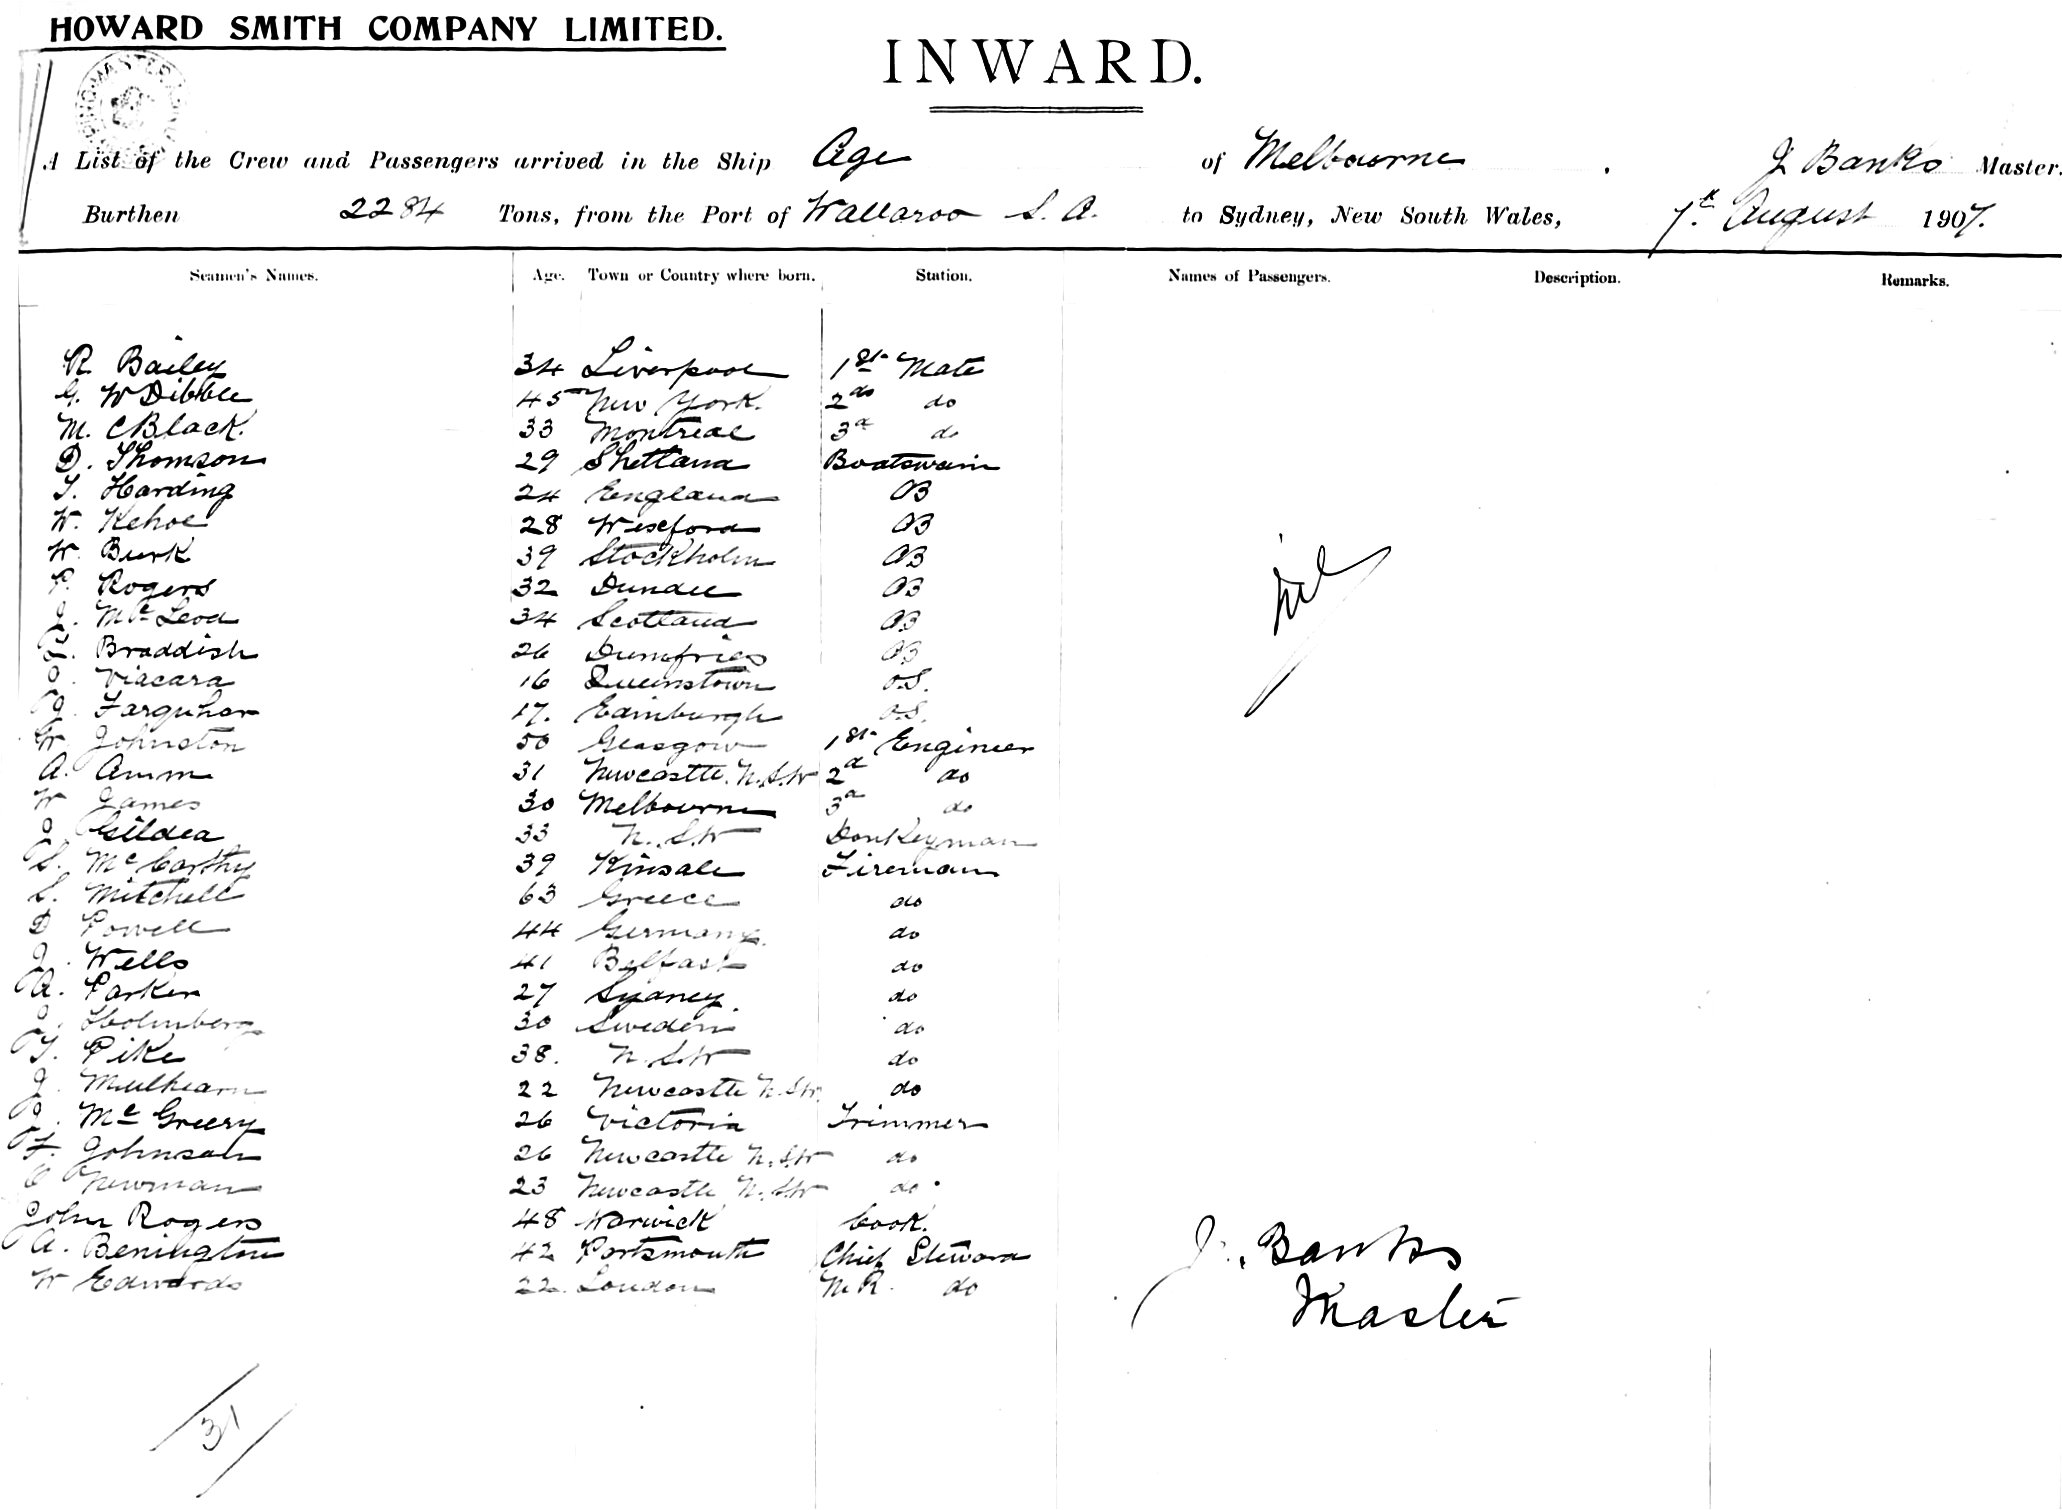 HOWARD SMITH COMPANY LIMITED.
INWARD.
A List of the Crew and Passengers arrived in the Ship Age of Melbourne. J Banks Master.
Burthen 2284 Tons, from the Port of Wallaroo S.A. to Sydney, New South Wales, 7th August 1907.
Seamen's Names. Age. Town or Country where born. Station. Names of Passengers. Description. Remarks.
R. Bailey 34 Liverpool 1st Mate
G. W Dibble 45 New York. 2nd do
M. C Black. 33 Montreal 3d do
D. Thomson 29 Shetland Boatswain
T. Harding 24 England AB
W. Kehoe 28 Wexford AB
W. Burk 39 Stockholm AB
P. Rogers 32 Dundee AB
J. McLeod 34 Scotland AB
Braddish 26 Dumfries AB
Viacara 16 Queenstown O.S.
J. Farquhar 17. Edinburgh O.S.
W. Johnston 50 Glasgow 1st Engineer
A. Amm 31 Newcastle. N.S.W 2d do
W James 30 Melbourne 3d do
J Gildea 33 N.S.W Donkeyman
S. McCarthy 39 Kinsale Fireman
S. Mitchell 63 Greece do
D Powell 44 Germany. do
J. Wells 41 Belfast do
A. Parker 27 Sydney. do
J. Holmberg 30 Sweden do
T. Pike 38. N.S.W do
J. Mulhearn 22 Newcastle N.S.W. do
J. McGreery 26 Victoria Trimmer
F. Johnson 26 Newcastle N.S.W do
C Newman 23 Newcastle N.S.W do
John Rogers 48 Warwick Cook.
A. Benington 42 Portsmouth Chief Steward
W Edwards 22. London M.R. do
nil
J. Banks
Master
31